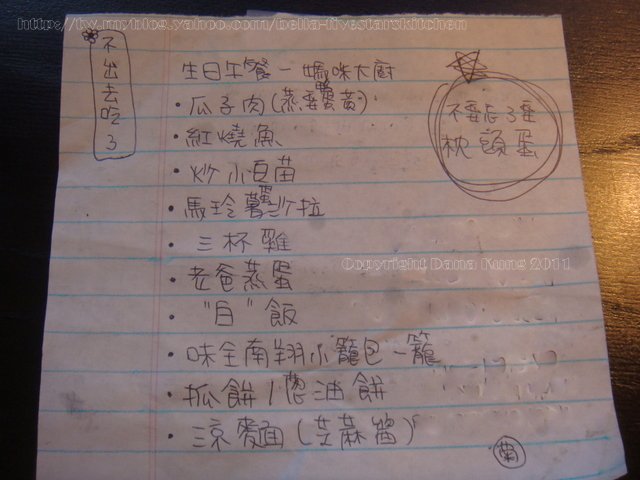 http://tw.myblog.yahoo.com/bella-fivestarskitchen
不出去吃了
生日午餐－媽咪大廚
·瓜子肉(蒸鴨蛋黃)
·紅燒魚
·炒小豆苗
·馬玲薯蛋沙拉
·三杯雞
·老爸蒸蛋
·"白"飯
·味全南翔小籠包一籠
·抓餅/蔥油餅
·涼麵(芝麻醬)
不要忘了要
枕頭蛋
Copyright Dana Kung 2011
菊